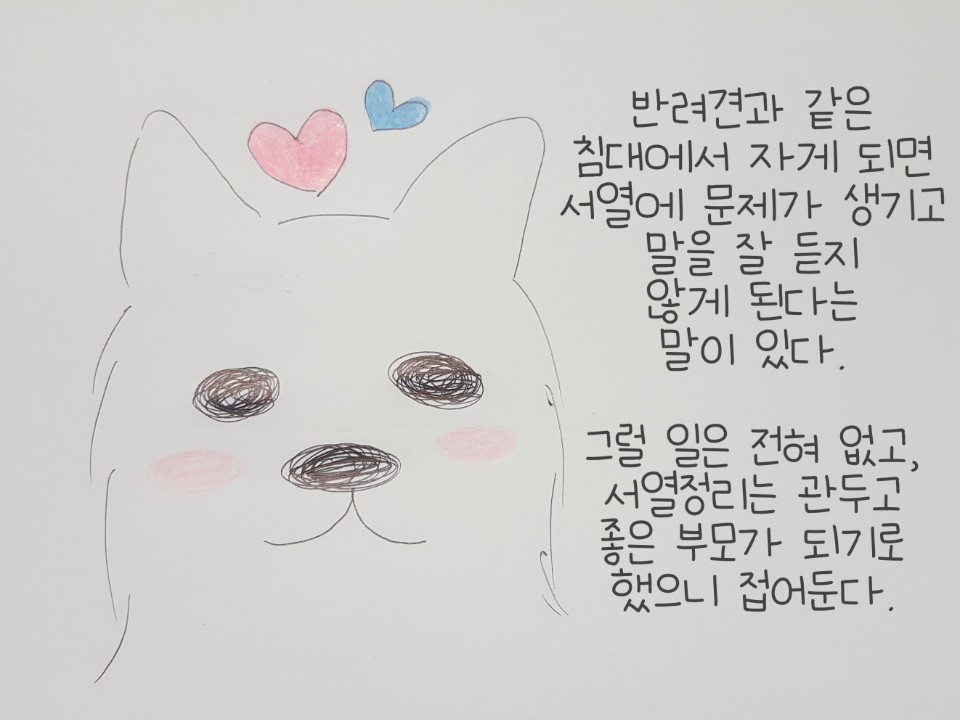 반려견과 같은
침대에서 자게 되면
서열에 문제가 생기고
말을 잘 듣지
않게 된다는
말이 있다.
그럴 일은 전혀 없고,
서열정리는 관두고
좋은 부모가 되기로
했으니 접어둔다.